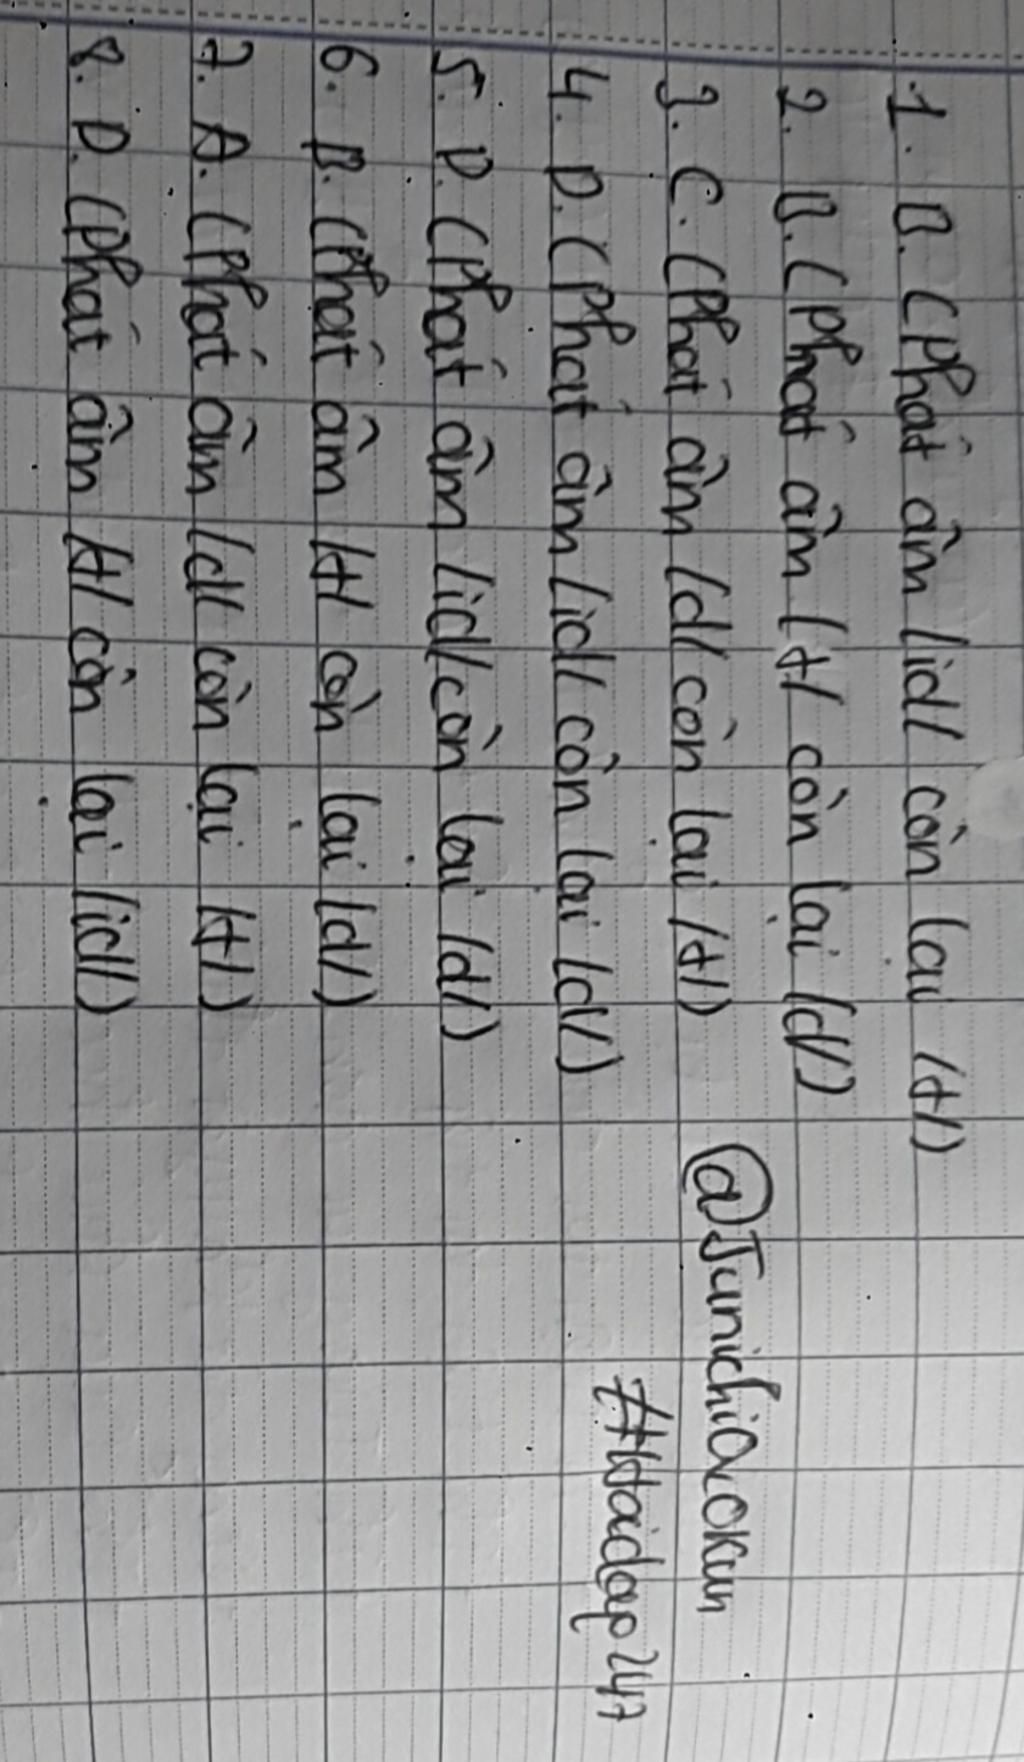 1. B. (Phát âm /id/ còn lại /t/)
2. B. (Phát âm /t/ còn lại /d/)
3. C. (Phát âm /d/ còn lại /t/)
4. D. (Phát âm /id/ còn lại /d/)
5. D. (Phát âm /id/ còn lại /d/)
6. B. (Phát âm /t/ còn lại /d/)
7. A. (Phát âm /d/ còn lại /t/)
8. D. (Phát âm /t/ còn lại /id/)
#Hoidap247